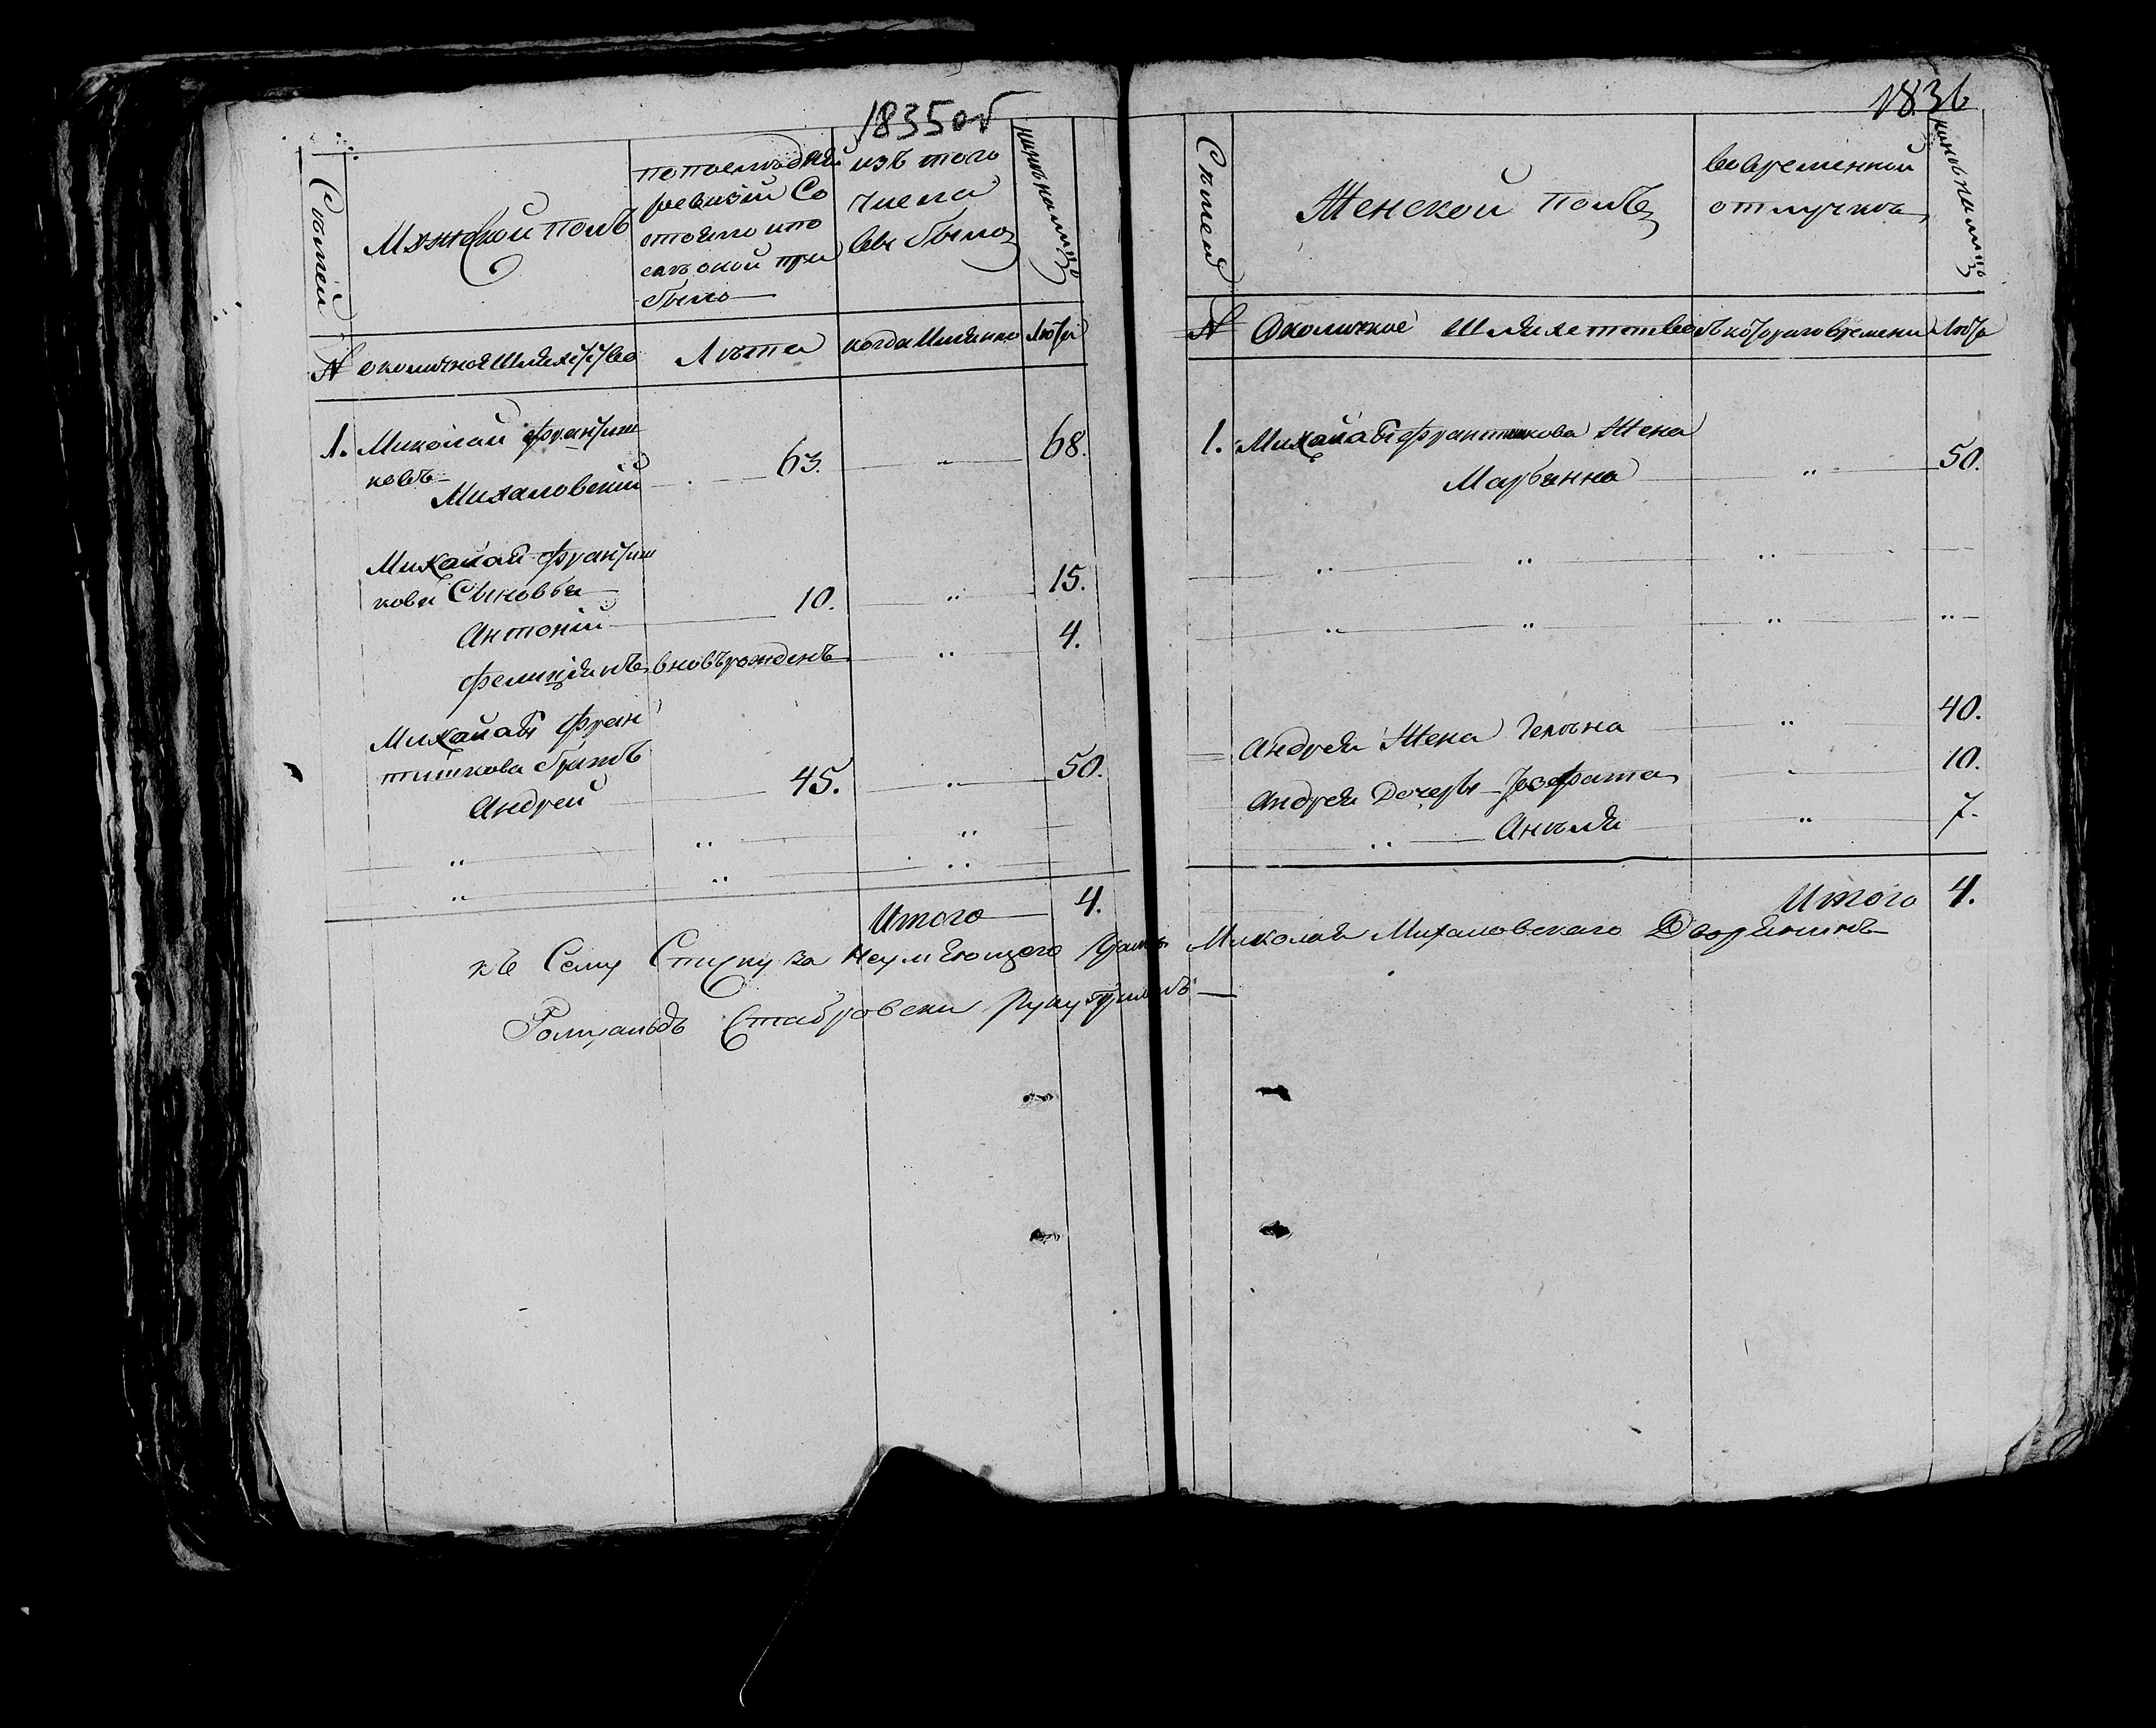 1835об
Семей
Мужской полъ
попоследней
ревизіи Со
стояло ипо
слѣ оной при
было
изъ того
числа
выбыло
нынѣ налицо
№ околичная Шляхетство
Лѣта
когда Именно
Лѣта
1. Миколай Францыш
ковъ
Михаловскій 63. „ 68.
Михалай Францыш
кова Сыновья
Антоній 10. „ 15.
Фелиціянъ вновърожденъ „ 4.
Фран
тишкова братъ
Андрей 45. „ 50.
„ „ „
„ „ „
Итого 4.
1836
Семей
Женской полъ
вовременной
отлучке
нынѣ налицо
№ Околичное Шляхетство съ котораго времени Лѣта
1. Франтишкова Жена
Марьянна „ 50.
„ „ „
„ „ „ „
Андрея Жена Гелѣна „ 40.
Андрея Дочеры Іозефата „ 10.
„ Анѣля „ 7.
Итого 4.
къ Сему Списку за Неумѣющего Миколая Михаловскаго Дворянинъ
Ромуальдъ Стабровски Руку приложилъ